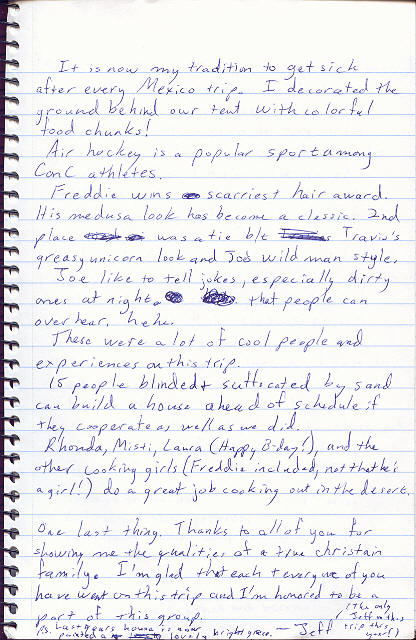 It is now my tradition to get sick
after every Mexico trip. I decorated the
ground behind our tent with colorful
food chunks!
Air hockey is a popular sport among
ConC athletes.
Freddie wins scarriest hair award.
His medusa look has become a classic. 2nd
place was a tie b/t Travis's
greasy unicorn look and Joe's wild man style.
Joe like to tell jokes, especially dirty
ones at night. that people can
over hear, hehe.
These were a lot of cool people and
experiences on this trip.
18 people blinded + suffocated by sand
can build a house ahead of schedule if
they cooperate as well as we did.
Rhonda, Misti, Laura (Happy B-day!), and the
other cooking girls (Freddie included, not that he's
a girl!) do a great job cooking out in the desert.
One last thing. Thanks to all of you for
showing me the qualities of a true christain
family. I'm gled that each + every one of you
have went on this trip and I'm honored to be a
part of this group.
(The only
Jeff on this
trip this
year!)
P.S. Last years house is now
painted a lovely bright green. - Jeff